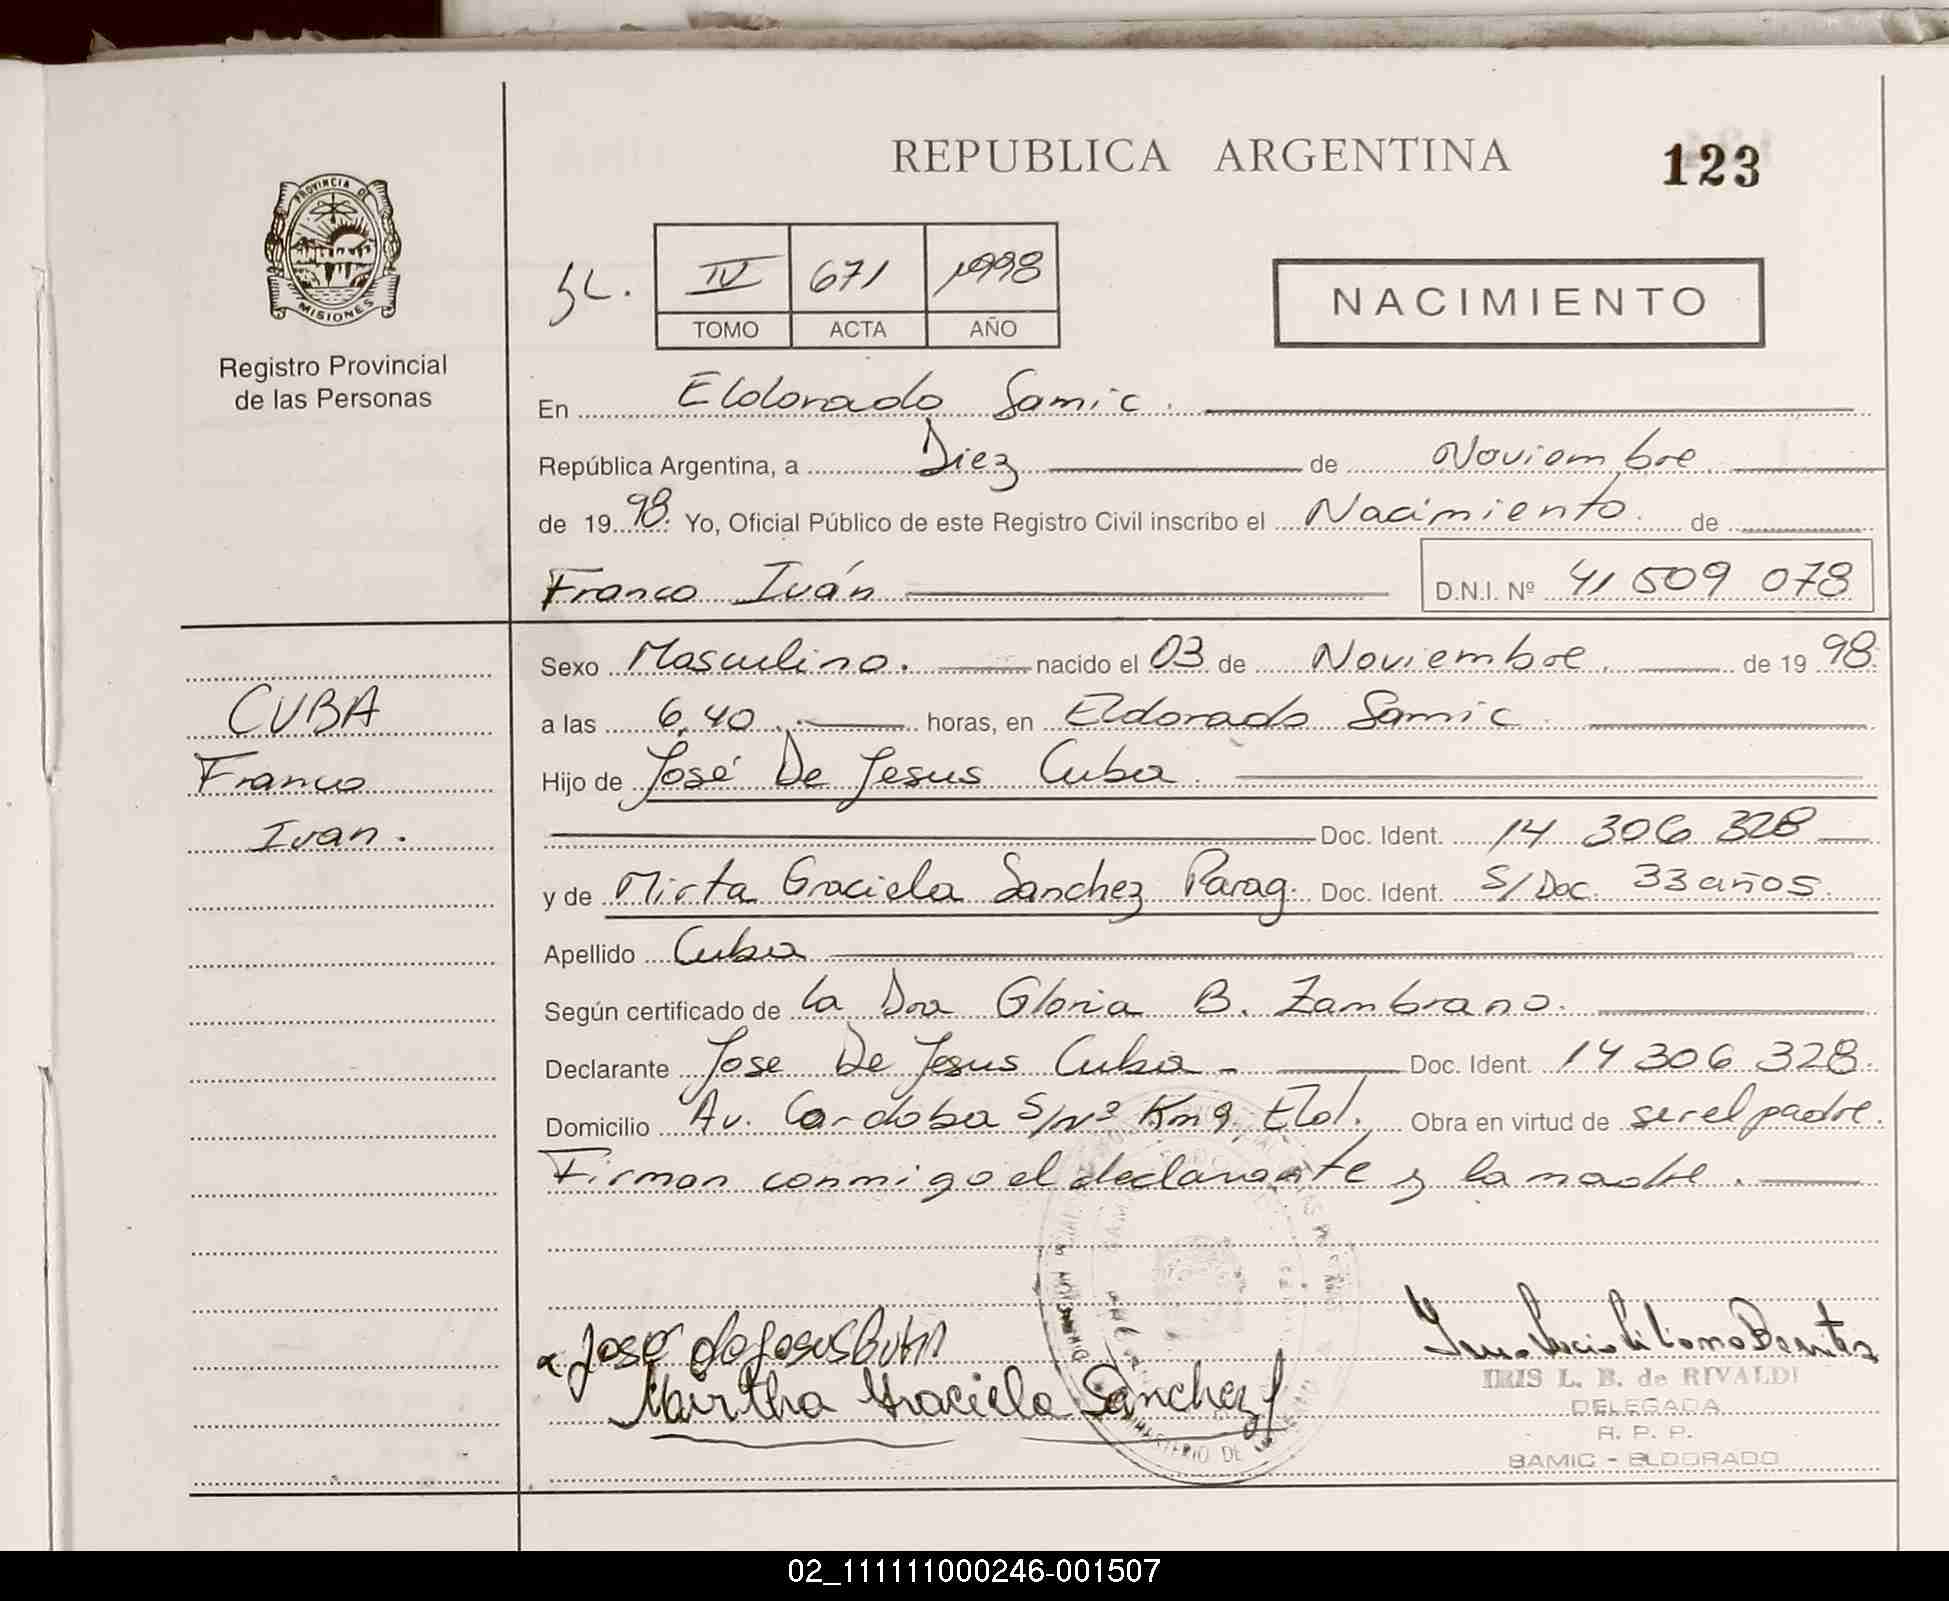 REPUBLICA ARGENTINA
123
PROVINCIA DE
MISIONES
Registro Provincial
de las Personas
IV 671 1998
TOMO ACTA AÑO
NACIMIENTO
En Eldorado Samic.
República Argentina, a Diez de Noviembre
de 1998. Yo, Oficial Público de este Registro Civil inscribo el Nacimiento. de
Franco Iván D.N.I. Nº 41 509 078
Sexo Masculino. nacido el 03 de Noviembre. de 1998.
CUBA
a las 6,40. horas, en Eldorado Samic.
Franco
Hijo de José De Jesus Cuba.
Ivan.
Doc. Ident. 14 306 328
y de Mirta Graciela Sanchez Parag. Doc. Ident. S/Doc. 33 años.
Apellido Cuba
Según certificado de la Dra Gloria B. Zambrano.
Declarante Jose De Jesus Cuba - Doc. Ident. 14 306 328.
Domicilio Av. Cordoba S/Nº Km 9. Eld. Obra en virtud de ser el padre.
Firman conmigo el declarante y la madre.
Mirtha Graciela Sanchez
IRIS L. B. de RIVALDI
DELEGADA
R. P. P.
SAMIC - ELDORADO
02_111111000246-001507